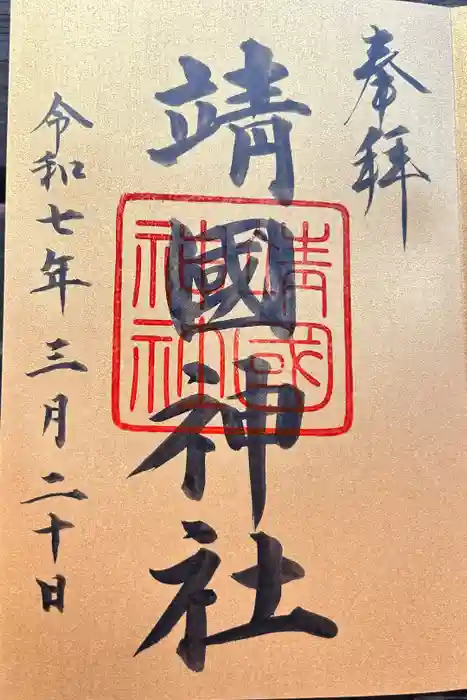 奉拝
靖國神社
靖国神社
令和七年三月二十日